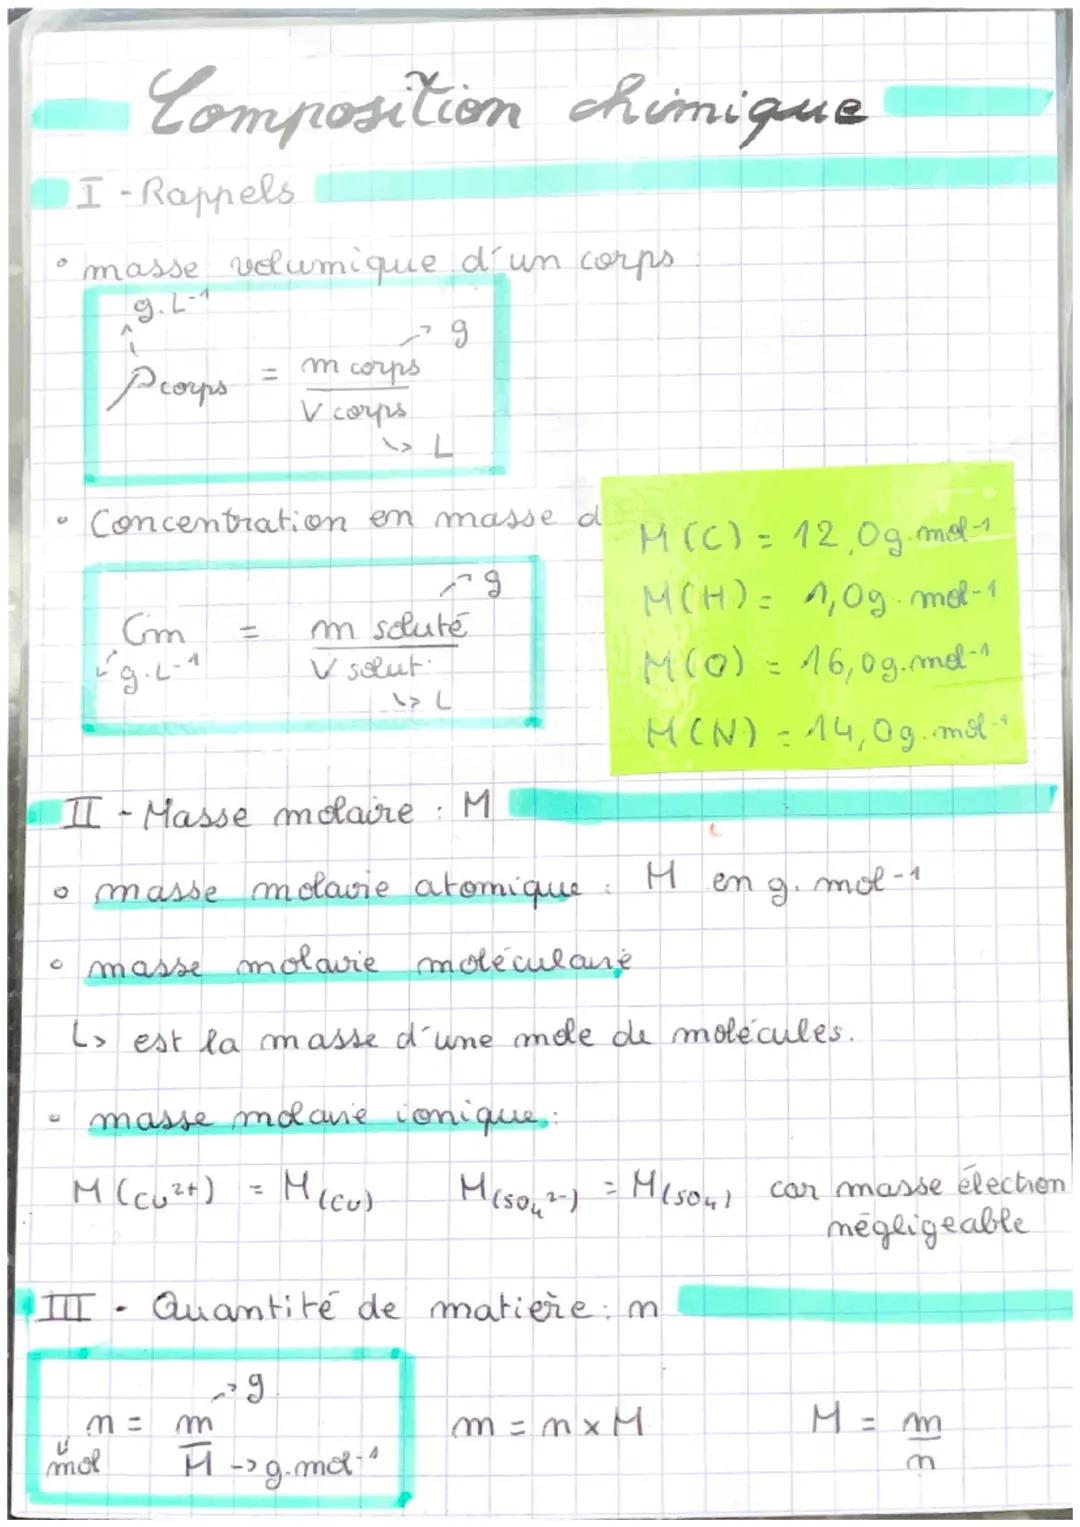 Composition chimique
I - Rappels
• masse volumique d'un corps
g.L-1
g
ρcorps = m corps / V corps
L
• Concentration en masse d
g
Cm = m soluté / V solut.
g.L-1
L
M(C) = 12,0g.mol-1
M(H) = 1,0g.mol-1
M(O) = 16,0g.mol-1
M(N) = 14,0g.mol-1
II - Masse molaire : M
• masse molavie atomique : M en g. mol-1
• masse molavie moléculaire
↳ est la masse d'une mole de molécules.
• masse molavie ionique :
M(Cu2+) = M(Cu) M(SO4 2-) = M(SO4) car masse électron
négligeable
III - Quantité de matière : n
g
n = m / M -> g.mol-1
mol
m = n x M
M = m / n